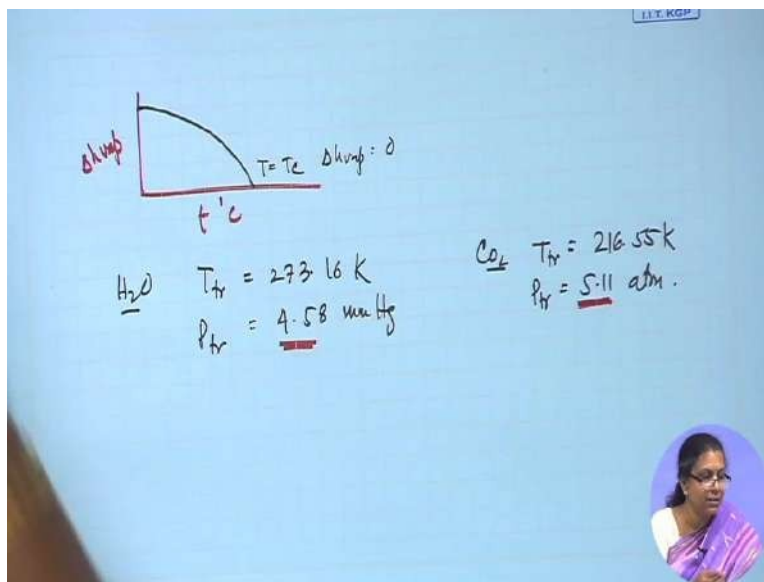 I.I.T. KGP
Δhvap
T = Tc Δhvap = 0
t °C
H2O Ttr = 273.16 K
Ptr = 4.58 mm Hg
CO2 Ttr = 216.55 K
Ptr = 5.11 atm.